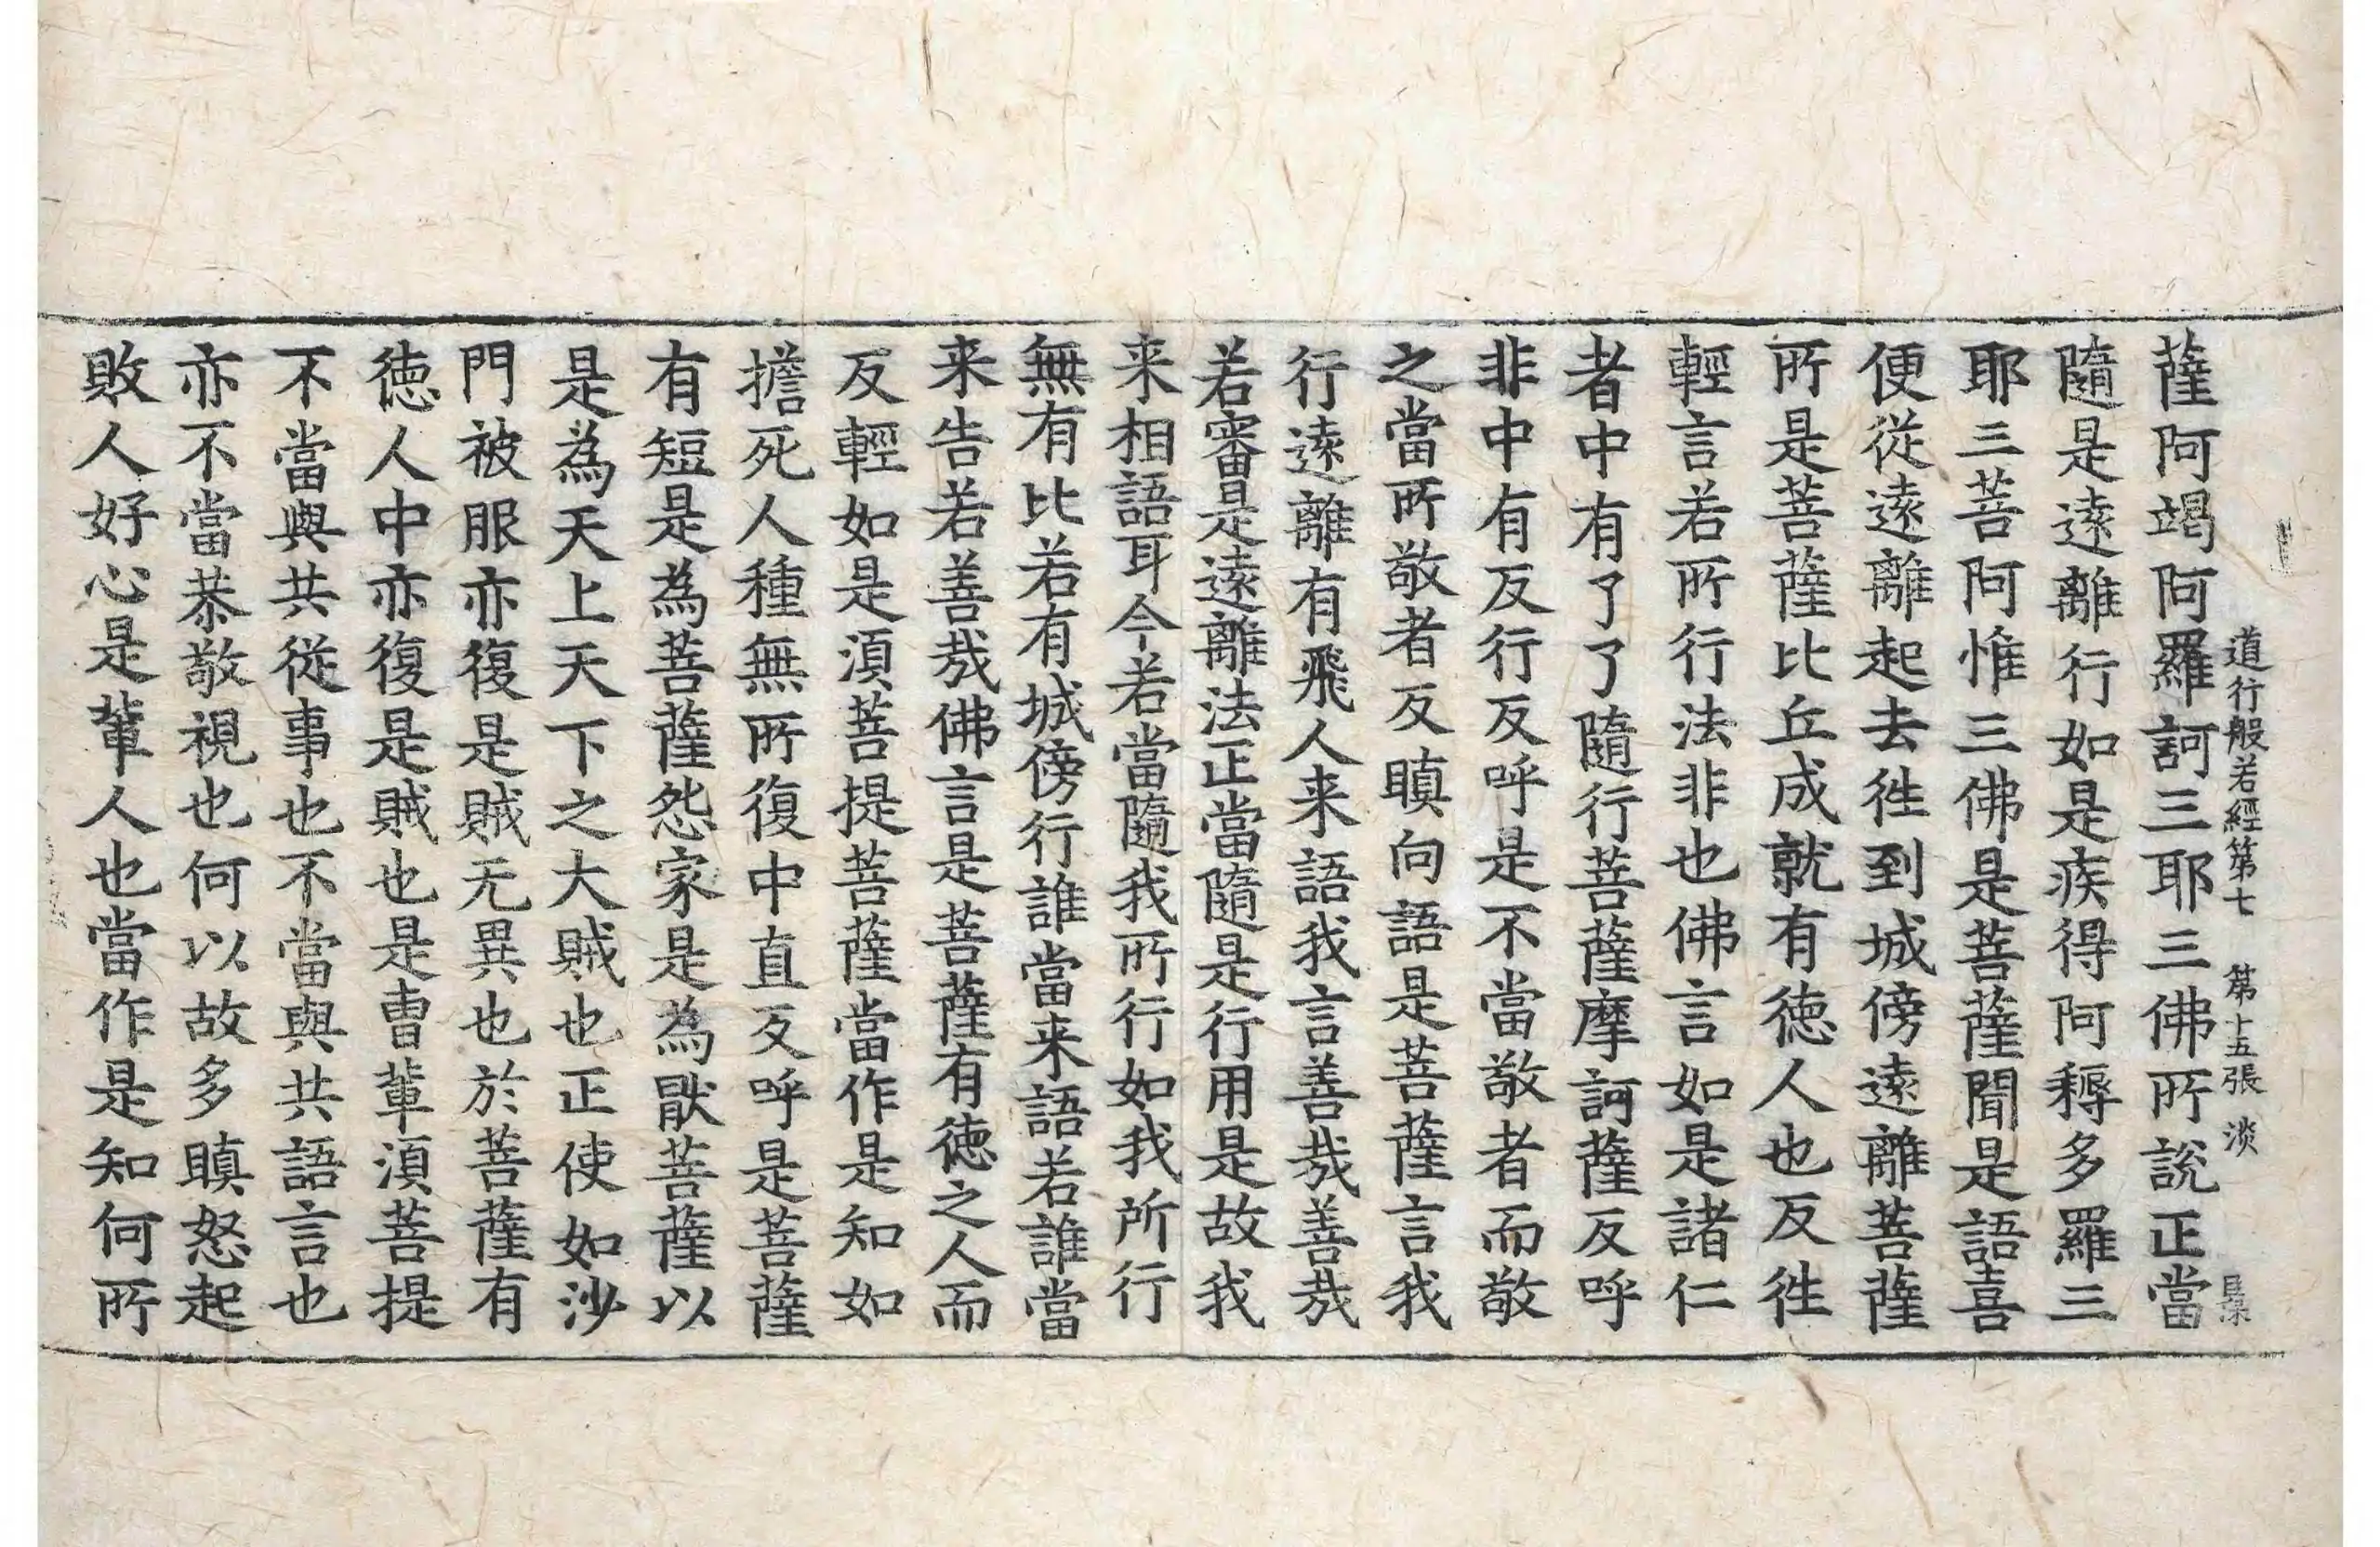 道行般若經第七　第十五張　淡
薩阿竭阿羅訶三耶三佛所說正當
隨是遠離行如是疾得阿耨多羅三
耶三菩阿惟三佛是菩薩聞是語喜
便從遠離起去徃到城傍遠離菩薩
所是菩薩比丘成就有徳人也反徃
輕言若所行法非也佛言如是諸仁
者中有了了隨行菩薩摩訶薩反呼
非中有反行反呼是不當敬者而敬
之當所敬者反瞋向語是菩薩言我
行遠離有飛人来語我言善㢤善㢤
若審是遠離法正當隨是行用是故我
来相語耳今若當隨我所行如我所行
無有比若有城傍行誰當来語若誰當
来告若善㢤佛言是菩薩有徳之人而
反輕如是湏菩提菩薩當作是知如
擔死人種無所復中直反呼是菩薩
有短是為菩薩怨家是為猒菩薩以
是為天上天下之大賊也正使如沙
門被服亦復是賊无異也於菩薩有
徳人中亦復是賊也是曺輩湏菩提
不當與共從事也不當與共語言也
亦不當恭敬視也何以故多瞋怒起
敗人好心是輩人也當作是知何所